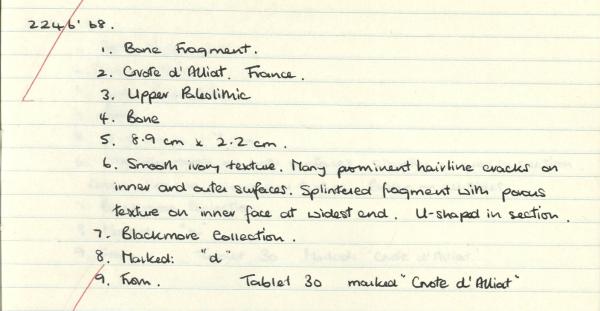 2246' b8.
1. Bone Fragment.
2. Crote d'Alliat. France.
3. Upper Paleolithic
4. Bone
5. 8.9 cm x 2.2 cm.
6. Smooth ivory texture. Many prominent hairline cracks on
inner and outer surfaces. Splintered fragment with porous
texture on inner face at widest end. U-shaped in section.
7. Blackmore Collection.
8. Marked: "d"
9. From. Tablet 30 marked "Crote d'Alliat"